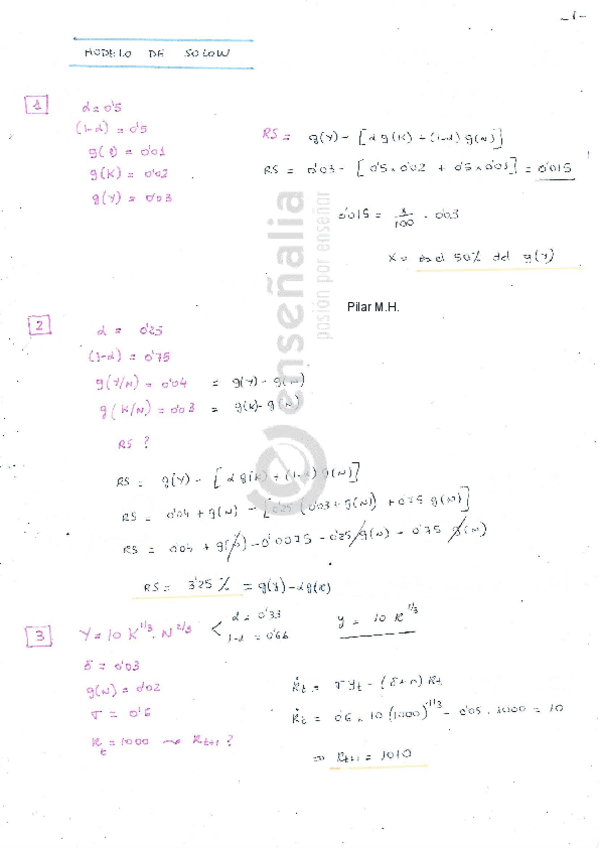 -1-
MODELO DE SOLOW
1
α = 0'5
(1-α) = 0'5
g(N) = 0'01
g(K) = 0'02
g(Y) = 0'03
RS = g(Y) - [α g(K) + (1-α) g(N)]
RS = 0'03 - [0'5 × 0'02 + 0'5 × 0'01] = 0'015
0'015 = x/100 · 0'03
X = es el 50% del g(Y)
enseñalia
pasión por enseñar
Pilar M.H.
2
α = 0'25
(1-α) = 0'75
g(Y/N) = 0'04 = g(Y) - g(N)
g(K/N) = 0'03 = g(K) - g(N)
RS ?
RS = g(Y) - [α g(K) + (1-α) g(N)]
RS = 0'04 + g(N) - [0'25 (0'03 + g(N)) + 0'75 g(N)]
RS = 0'04 + g(N) - 0'0075 - 0'25 g(N) - 0'75 g(N)
RS = 3'25 % = g(y) - α g(k)
3
Y = 10 K^1/3 · N^2/3 < α = 0'33
1-α = 0'66
y = 10 k^1/3
δ = 0'03
g(N) = 0'02
σ = 0'6
k_t = 1000 → k_t+1 ?
k̇_t = σ y_t - (δ+n) k_t
k̇_t = 0'6 · 10 (1000)^1/3 - 0'05 · 1000 = 10
⇒ k_t+1 = 1010